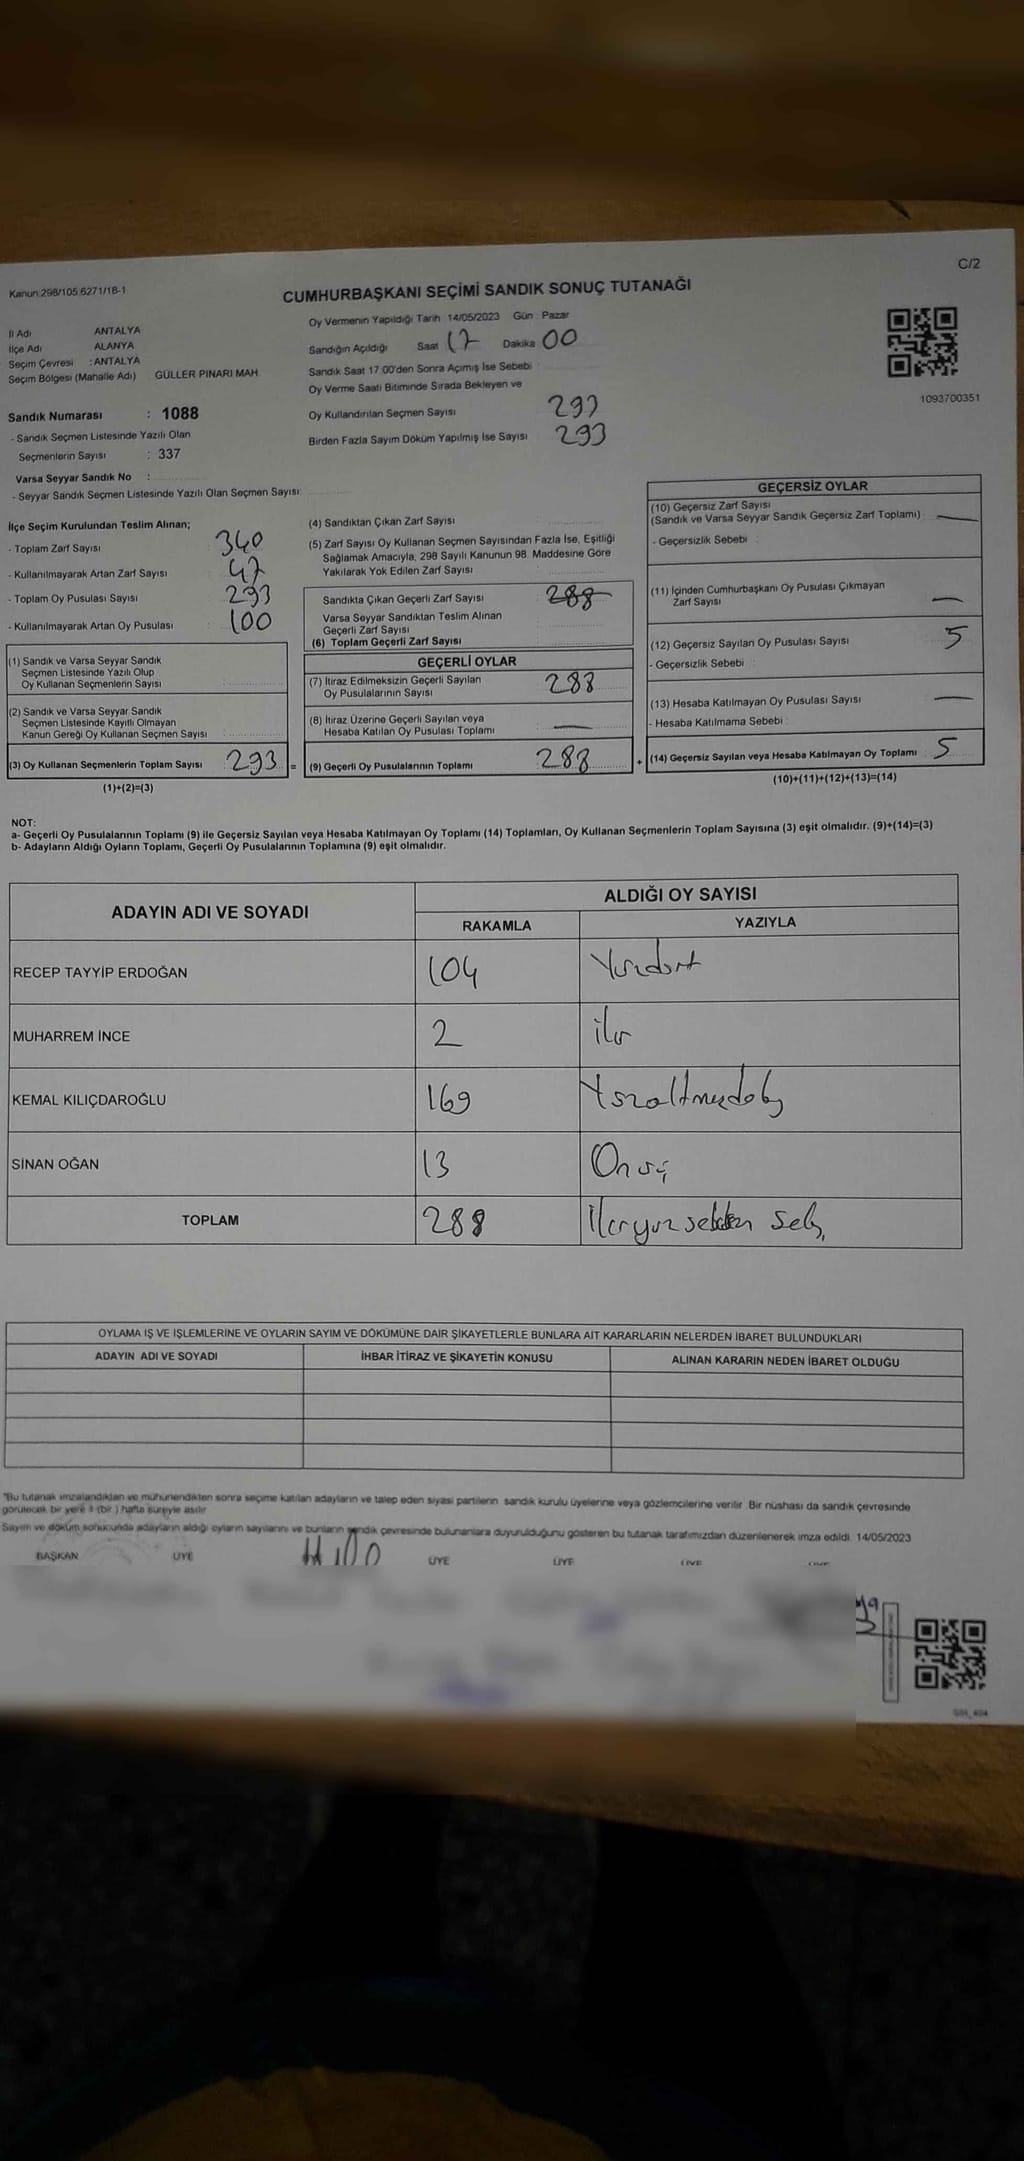 C/2
Kanun:298/105,6271/18-1
CUMHURBAŞKANI SEÇİMİ SANDIK SONUÇ TUTANAĞI
İl Adı ANTALYA
İlçe Adı ALANYA
Seçim Çevresi : ANTALYA
Seçim Bölgesi (Mahalle Adı) GÜLLER PINARI MAH.
Oy Vermenin Yapıldığı Tarih 14/05/2023 Gün : Pazar
Sandığın Açıldığı Saat 17 Dakika 00
Sandık Saat 17:00'den Sonra Açımış İse Sebebi :
Oy Verme Saati Bitiminde Sırada Bekleyen ve
Oy Kullandırılan Seçmen Sayısı 293
Birden Fazla Sayım Döküm Yapılmış İse Sayısı 293
1093700351
Sandık Numarası : 1088
- Sandık Seçmen Listesinde Yazılı Olan
Seçmenlerin Sayısı : 337
Varsa Seyyar Sandık No :
- Seyyar Sandık Seçmen Listesinde Yazılı Olan Seçmen Sayısı:
İlçe Seçim Kurulundan Teslim Alınan;
- Toplam Zarf Sayısı 340
- Kullanılmayarak Artan Zarf Sayısı 47
- Toplam Oy Pusulası Sayısı 293
- Kullanılmayarak Artan Oy Pusulası : 100
(1) Sandık ve Varsa Seyyar Sandık
Seçmen Listesinde Yazılı Olup
Oy Kullanan Seçmenlerin Sayısı
(2) Sandık ve Varsa Seyyar Sandık
Seçmen Listesinde Kayıtlı Olmayan
Kanun Gereği Oy Kullanan Seçmen Sayısı
(3) Oy Kullanan Seçmenlerin Toplam Sayısı 293 =
(1)+(2)=(3)
(4) Sandıktan Çıkan Zarf Sayısı
(5) Zarf Sayısı Oy Kullanan Seçmen Sayısından Fazla İse, Eşitliği
Sağlamak Amacıyla, 298 Sayılı Kanunun 98. Maddesine Göre
Yakılarak Yok Edilen Zarf Sayısı
Sandıkta Çıkan Geçerli Zarf Sayısı 288
Varsa Seyyar Sandıktan Teslim Alınan
Geçerli Zarf Sayısı
(6) Toplam Geçerli Zarf Sayısı
GEÇERLİ OYLAR
(7) İtiraz Edilmeksizin Geçerli Sayılan
Oy Pusulalarının Sayısı 288
(8) İtiraz Üzerine Geçerli Sayılan veya
Hesaba Katılan Oy Pusulası Toplamı —
(9) Geçerli Oy Pusulalarının Toplamı 288 +
GEÇERSİZ OYLAR
(10) Geçersiz Zarf Sayısı
(Sandık ve Varsa Seyyar Sandık Geçersiz Zarf Toplamı) —
- Geçersizlik Sebebi :
(11) İçinden Cumhurbaşkanı Oy Pusulası Çıkmayan
Zarf Sayısı —
(12) Geçersiz Sayılan Oy Pusulası Sayısı 5
- Geçersizlik Sebebi :
(13) Hesaba Katılmayan Oy Pusulası Sayısı —
- Hesaba Katılmama Sebebi :
(14) Geçersiz Sayılan veya Hesaba Katılmayan Oy Toplamı 5
(10)+(11)+(12)+(13)=(14)
NOT:
a- Geçerli Oy Pusulalarının Toplamı (9) ile Geçersiz Sayılan veya Hesaba Katılmayan Oy Toplamı (14) Toplamları, Oy Kullanan Seçmenlerin Toplam Sayısına (3) eşit olmalıdır. (9)+(14)=(3)
b- Adayların Aldığı Oyların Toplamı, Geçerli Oy Pusulalarının Toplamına (9) eşit olmalıdır.
ADAYIN ADI VE SOYADI ALDIĞI OY SAYISI
RAKAMLA YAZIYLA
RECEP TAYYİP ERDOĞAN 104 Yüzdört
MUHARREM İNCE 2 iki
KEMAL KILIÇDAROĞLU 169 Yüzaltmışdokuz
SİNAN OĞAN 13 Onüç
TOPLAM 288 İkiyüzseksen sekiz
OYLAMA İŞ VE İŞLEMLERİNE VE OYLARIN SAYIM VE DÖKÜMÜNE DAİR ŞİKAYETLERLE BUNLARA AİT KARARLARIN NELERDEN İBARET BULUNDUKLARI
ADAYIN ADI VE SOYADI İHBAR İTİRAZ VE ŞİKAYETİN KONUSU ALINAN KARARIN NEDEN İBARET OLDUĞU
"Bu tutanak imzalandıktan ve mühürlendikten sonra seçime katılan adayların ve talep eden siyasi partilerin sandık kurulu üyelerine veya gözlemcilerine verilir. Bir nüshası da sandık çevresinde
görülecek bir yere 1 (bir ) hafta süreyle asılır
Sayım ve döküm sonucunda adayların aldığı oyların sayılarını ve bunların sandık çevresinde bulunanlara duyurulduğunu gösteren bu tutanak tarafımızdan düzenlenerek imza edildi. 14/05/2023
BAŞKAN ÜYE ÜYE ÜYE ÜYE